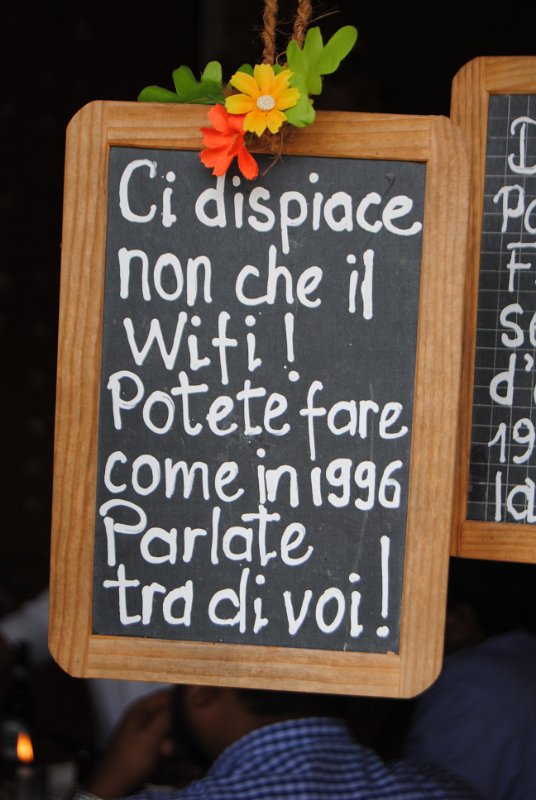 Ci dispiace
non che il
Wifi !
Potete fare
come in 1996
Parlate
tra di voi !